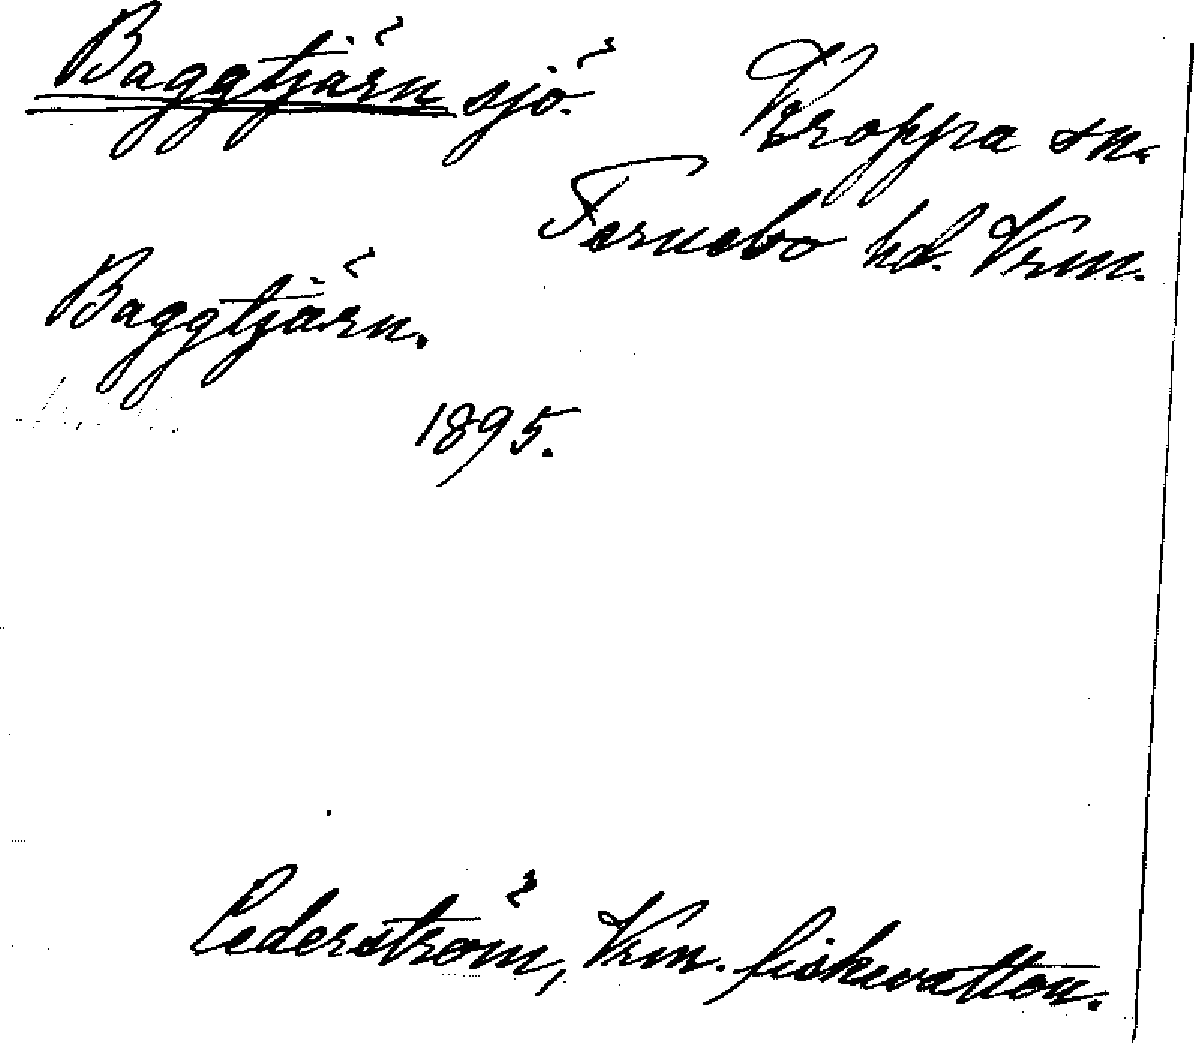 Baggtjärn sjö.
Kroppa sn.
Färnebo hd. Vrm.
Baggtjärn.
1895.
Cederström, Vrm. fiskevatten.